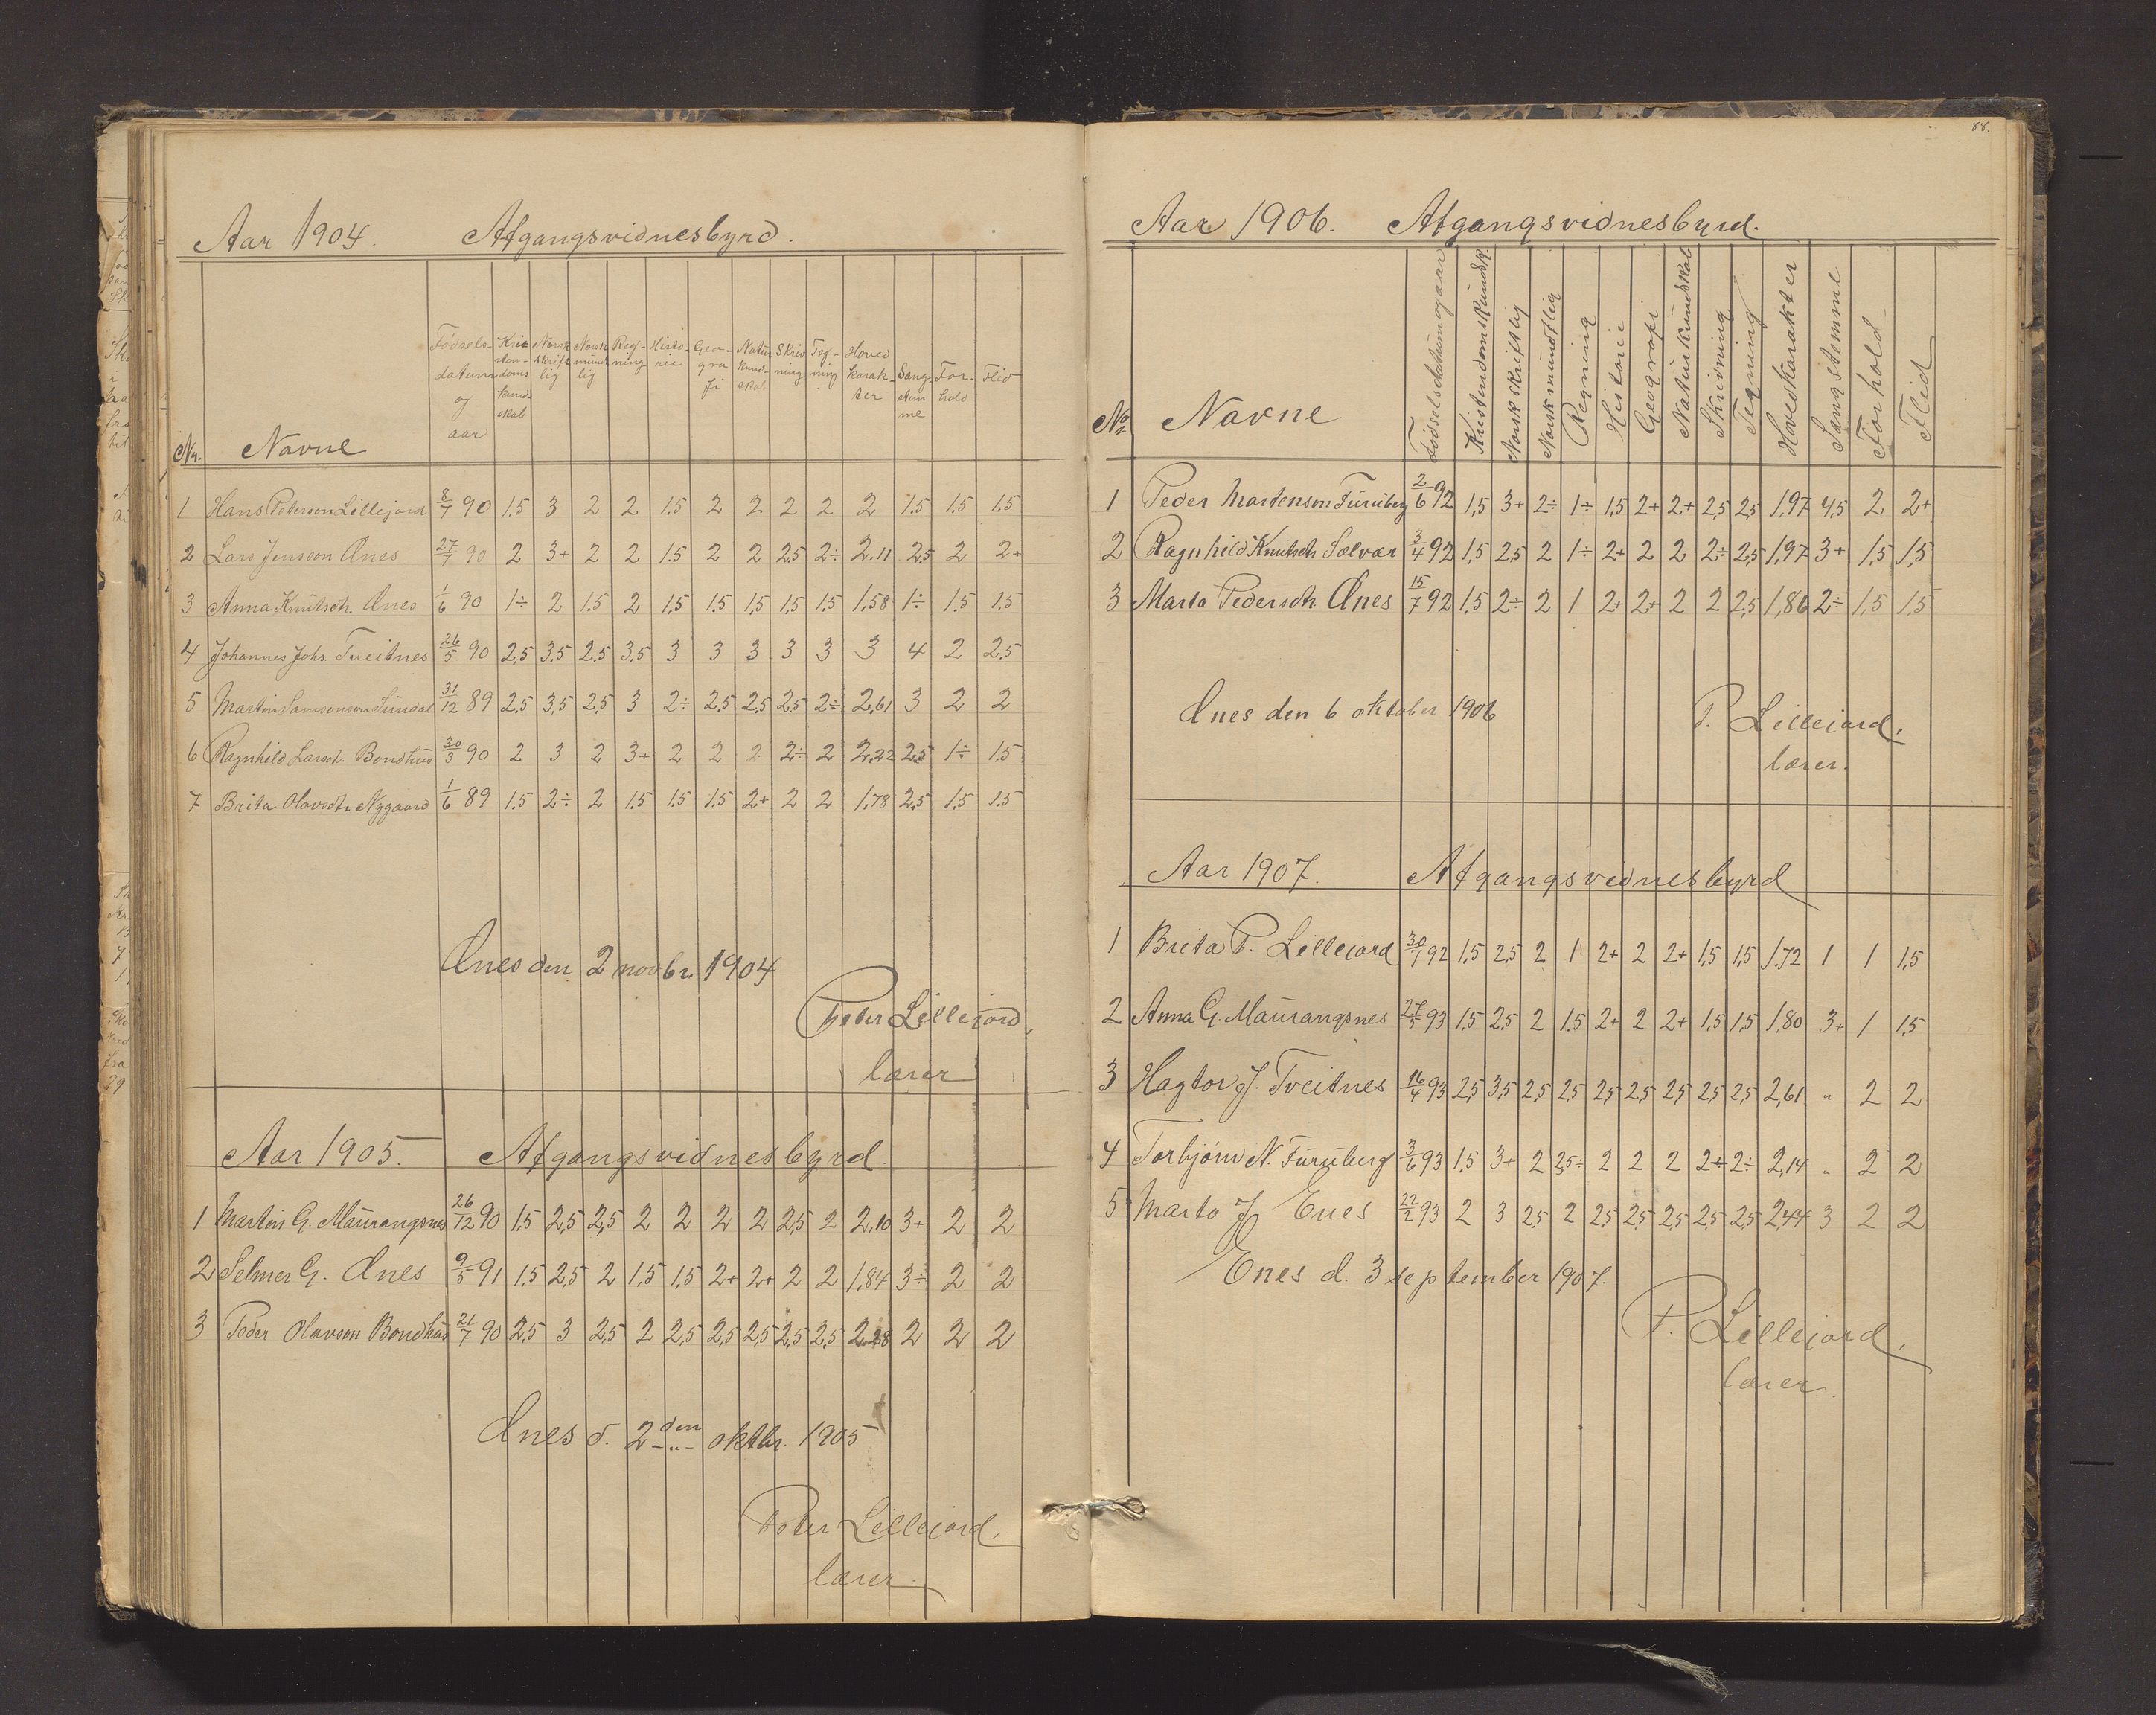 Aar 1904. Afgangsvidnesbyrd.
Nr. Navne Fødsels-datum og aar Kristen-doms kund-skab Norsk skrift lig Norsk münt lig Reg-ning Histo-rie Geo-gra fi Natur kund-skab Skriv ning Teg-ning Hoved karak-ter Sang-stem me For-hold Flid
1 Hans Peterson Lillejord 8/7 90 1.5 3 2 2 1.5 2 2 2 2 2 1.5 1.5 1.5
2 Lars Jensson Ænes 27/7 90 2 3+ 2 2 1.5 2 2 2.5 2÷ 2.11 2,5 2 2+
3 Anna Knütsdtr. Ænes 1/6 90 1÷ 2 1.5 2 1,5 1.5 1,5 1,5 1.5 1,58 1÷ 1.5 1.5
4 Johannes Johs. Tveitnes 26/5 90 2,5 3.5 2.5 3.5 3 3 3 3 3 3 4 2 2.5
5 Martin Samsonson Sündal 31/12 89 2.5 3,5 2,5 3 2÷ 2.5 2,5 2,5 2÷ 2,61 3 2 2
6 Ragnhild Larsd. Bondhüs 30/3 90 2 3 2 3+ 2 2 2 2÷ 2 2,22 2,5 1÷ 1.5
7 Brita Olavsdtr Nygaard 1/6 89 1.5 2÷ 2 1.5 1.5 1.5 2+ 2 2 1,78 2,5 1.5 1.5
Ænes den 2 novbr 1904
Peter Lillejord,
lærer
Aar 1905. Afgangsvidnesbyrd.
1 Martin G. Maürangsnes 26/12 90 1.5 2,5 2,5 2 2 2 2 2,5 2 2,10 3+ 2 2
2 Selmer G. Ænes 9/5 91 1.5 2,5 2 1,5 1,5 2+ 2+ 2 2 1,84 3÷ 2 2
3 Peder Olavson Bondhüs 21/7 90 2,5 3 2,5 2 2,5 2,5 2,5 2,5 2,5 2 2 2
Ænes d. 2 den oktbr. 1905
Peter Lillejord.
lærer.
88.
Aar 1906. Afgangsvidnesbyrd.
No Navne Fødselsdatum og aar Kristendomskundsk. Norsk skriftlig Norsk mündtlig Regning Historie Geografi Naturkündskab Skrivning Tegning Hovedkarakter Sangstemme Forhold Flid
1 Peder Martenson Fürüberg 2/6 92 1,5 3+ 2÷ 1÷ 1,5 2+ 2+ 2,5 2,5 1,97 4,5 2 2+
2 Ragnhild Knutsdtr Sælvær 3/4 92 1,5 2,5 2 1÷ 2+ 2 2 2÷ 2,5 1,97 3+ 1,5 1,5
3 Marta Pedersdtr Ænes 15/7 92 1,5 2÷ 2 1 2+ 2+ 2 2 2,5 1,86 2÷ 1,5 1,5
Ænes den 6 oktober 1906
P. Lillejord.
lærer.
Aar 1907. Afgangsvidnesbyrd
1 Brita P. Lillejord 30/7 92 1,5 2,5 2 1 2+ 2 2+ 1,5 1,5 1.72 1 1 1,5
2 Anna G. Maürangsnes 27/5 93 1,5 2,5 2 1.5 2+ 2 2+ 1,5 1,5 1,80 3+ 1 1,5
3 Hagtor J. Tveitnes 16/4 93 2,5 3,5 2,5 2,5 2,5 2,5 2,5 2,5 2,5 2,61 " 2 2
4 Torbjörn N. Fürüberg 3/6 93 1.5 3+ 2 2,5÷ 2 2 2 2÷ 2÷ 2,14 " 2 2
5 Marta J. Enes 22/2 93 2 3 2,5 2 2,5 2,5 2,5 2,5 2,5 2,44 3 2 2
Enes d. 3 september 1907.
P. Lillejord,
lærer.